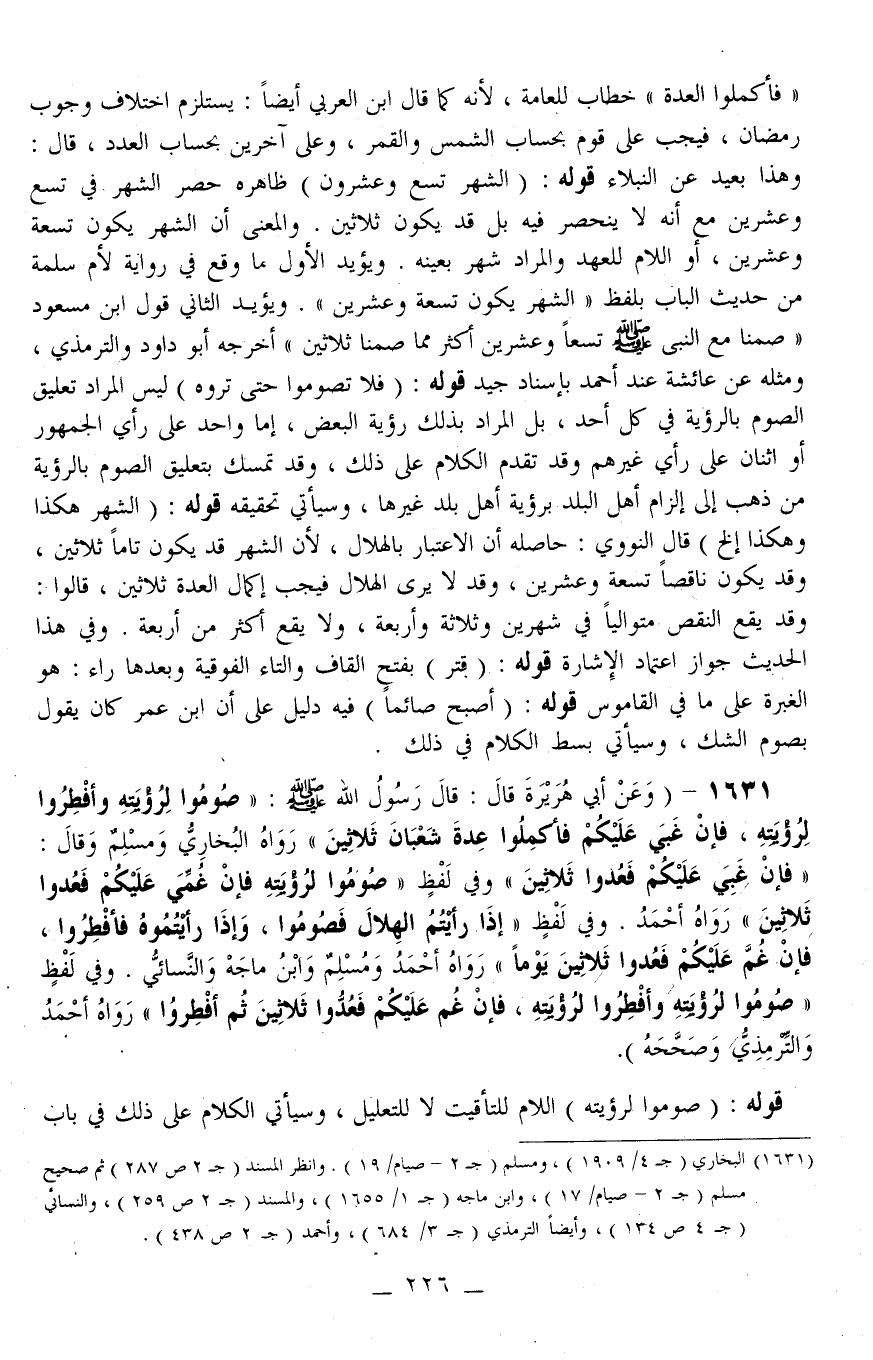 « فأكملوا العدة » خطاب للعامة ، لأنه كما قال ابن العربي أيضاً : يستلزم اختلاف وجوب
رمضان ، فيجب على قوم بحساب الشمس والقمر ، وعلى آخرين بحساب العدد ، قال :
وهذا بعيد عن النبلاء قوله : ( الشهر تسع وعشرون ) ظاهره حصر الشهر في تسع
وعشرين مع أنه لا ينحصر فيه بل قد يكون ثلاثين . والمعنى أن الشهر يكون تسعة
وعشرين ، أو اللام للعهد والمراد شهر بعينه . ويؤيد الأول ما وقع في رواية لأم سلمة
من حديث الباب بلفظ « الشهر يكون تسعة وعشرين » . ويؤيد الثاني قول ابن مسعود
« صمنا مع النبى ﷺ تسعاً وعشرين أكثر مما صمنا ثلاثين » أخرجه أبو داود والترمذي ،
ومثله عن عائشة عند أحمد بإسناد جيد قوله : ( فلا تصوموا حتى تروه ) ليس المراد تعليق
الصوم بالرؤية في كل أحد ، بل المراد بذلك رؤية البعض ، إما واحد على رأي الجمهور
أو اثنان على رأي غيرهم وقد تقدم الكلام على ذلك ، وقد تمسك بتعليق الصوم بالرؤية
من ذهب إلى إلزام أهل البلد برؤية أهل بلد غيرها ، وسيأتي تحقيقه قوله : ( الشهر هكذا
وهكذا إلخ ) قال النووي : حاصله أن الاعتبار بالهلال ، لأن الشهر قد يكون تاماً ثلاثين ،
وقد يكون ناقصاً تسعة وعشرين ، وقد لا يرى الهلال فيجب إكمال العدة ثلاثين ، قالوا :
وقد يقع النقص متوالياً في شهرين وثلاثة وأربعة ، ولا يقع أكثر من أربعة . وفي هذا
الحديث جواز اعتماد الإشارة قوله : ( قتر ) بفتح القاف والتاء الفوقية وبعدها راء : هو
الغبرة على ما في القاموس قوله : ( أصبح صائماً ) فيه دليل على أن ابن عمر كان يقول
بصوم الشك ، وسيأتي بسط الكلام في ذلك .
١٦٣١ – ( وَعَنْ أبي هُرَيْرَةَ قالَ : قالَ رَسُولُ الله ﷺ : « صُومُوا لِرُؤْيَتِهِ وأفْطِرُوا
لِرُؤْيَتِهِ ، فإنْ غَبَي عَلَيْكُمْ فأكمِلُوا عِدةَ شَعْبَانَ ثَلاثِينَ » رَوَاهُ البُخاريُّ وَمسْلِمٌ وَقالَ :
« فإنْ غِبَي عَلَيْكُمْ فَعُدوا ثَلاثِينَ » وفي لَفْظٍ « صُومُوا لرُؤْيَتِهِ فإنْ غُمِّي عَلَيْكُمْ فَعُدوا
ثَلاثِينَ » رَوَاهُ أحْمَدُ . وفي لَفْظٍ « إذَا رأيْتُمُ الهِلالَ فَصُومُوا ، وَإذَا رأيْتُمُوهُ فأفْطِرُوا ،
فإنْ غُمَّ عَلَيْكُمْ فَعُدوا ثَلاثِينَ يَوْماً » رَوَاهُ أحْمَدُ وَمُسْلِمٌ وَابْنُ ماجَهْ وَالنَّسائيُّ . وفي لَفْظٍ
« صُومُوا لرُؤْيَتِهِ وأفْطِرُوا لرُؤْيَتِهِ ، فإنْ غُم عَلَيْكُمْ فَعُدُّوا ثَلاثِينَ ثُم أفْطِروُا » رَوَاهُ أحْمَدُ
وَالتِّرْمِذِيُّ وَصَحَّحَهُ ).
قوله : ( صوموا لرؤيته ) اللام للتأقيت لا للتعليل ، وسيأتي الكلام على ذلك في باب
(١٦٣١) البخاري ( جـ ٤/ ١٩٠٩ ) ، ومسلم ( جـ ٢ – صيام/ ١٩ ) . وانظر المسند ( جـ ٢ ص ٢٨٧ ) ثم صحيح
مسلم ( جـ ٢ – صيام/ ١٧ ) ، وابن ماجه ( جـ ١/ ١٦٥٥ ) ، والمسند ( جـ ٢ ص ٢٥٩ ) ، والنسائي
( جـ ٤ ص ١٣٤ ) ، وأيضاً الترمذي ( جـ ٣/ ٦٨٤ ) ، وأحمد ( جـ ٢ ص ٤٣٨ ) .
– ٢٢٦ –